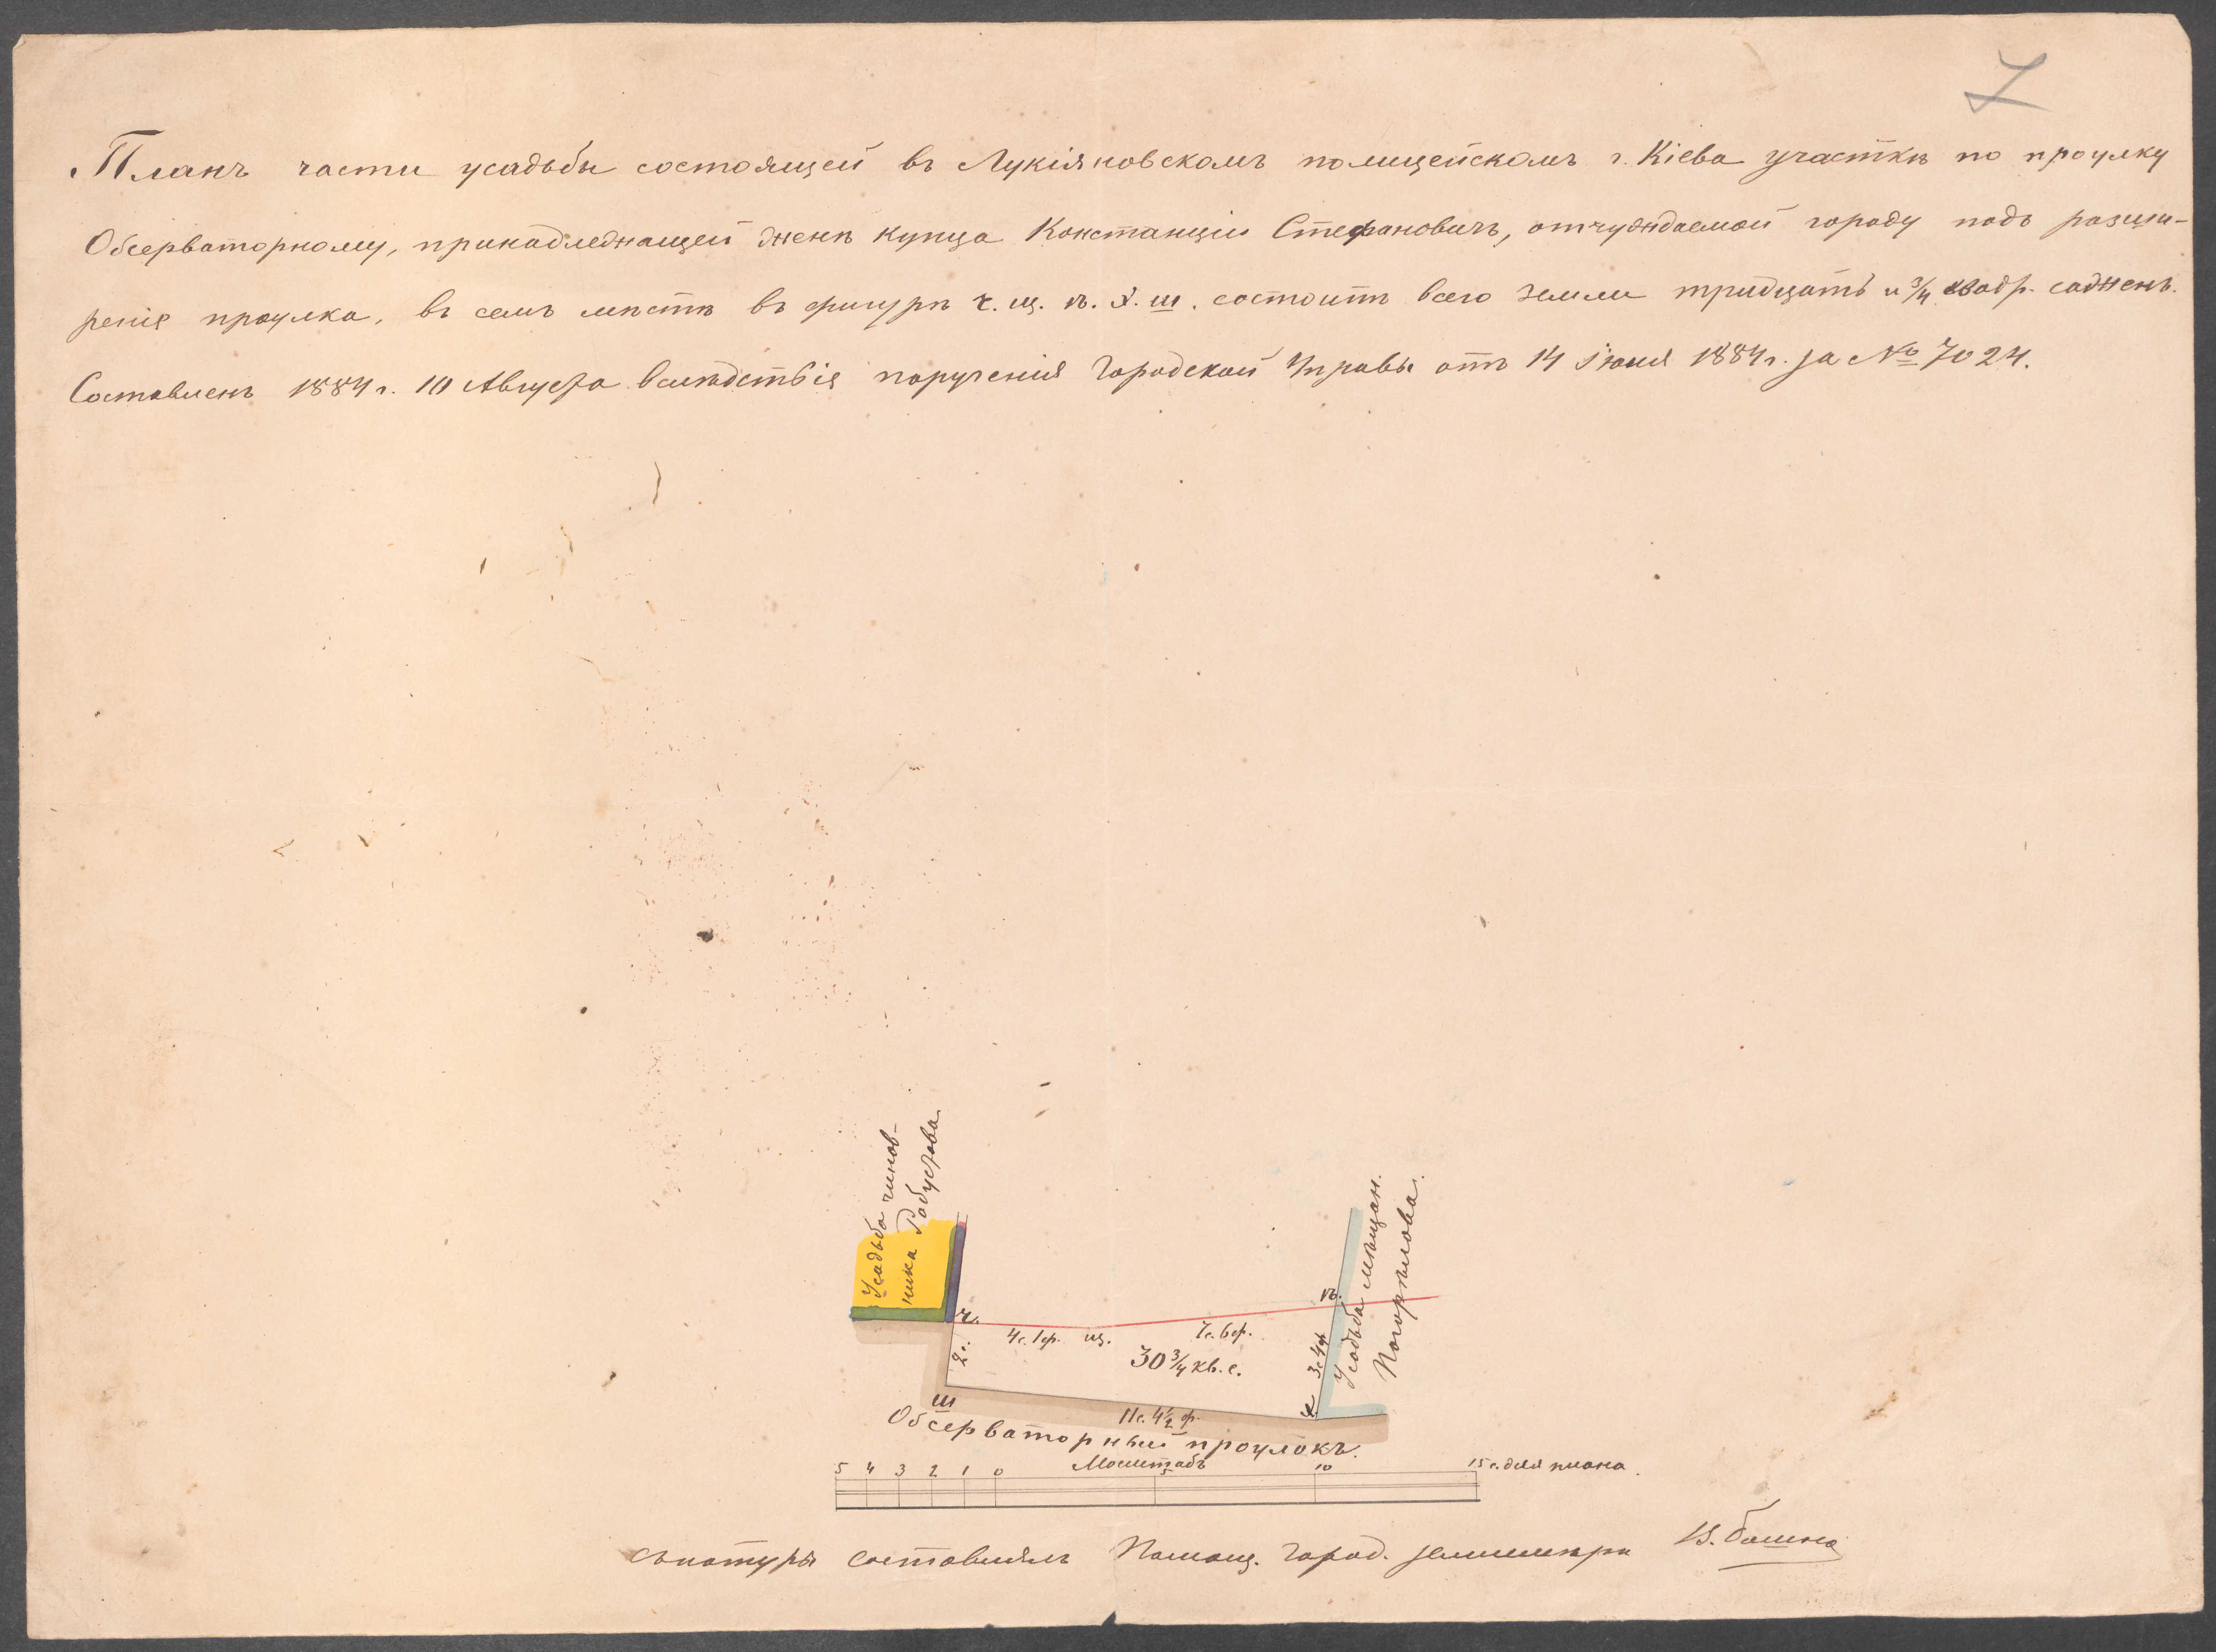 7
Планъ части усадьбы состоящей въ Лукіяновскомъ полицейскомъ г. Кіева участкѣ по проулку
Обсерваторному, принадлежащей женѣ купца Констанціи Стефановичъ, отчуждаемой городу подъ расши-
ренія проулка, въ семъ мѣстѣ въ фигурѣ ч. щ. ѣ. х. ш. состоитъ всего земли тридцать и 3/4 квадр. саженъ.
Составленъ 1884 г. 10 Августа вслѣдствія порученія Городской Управы отъ 14 Іюня 1884 г. за № 7024.
Усадьба чинов-
ника Рабустова
Усадьба мѣщан.
Погорѣлова.
ч.
4с. 1ф. щ.
7с. 6ф.
ѣ.
2с.
30 3/4 кв. с.
3с. 4ф.
ш
11с. 4 1/2 ф.
х
Обсерваторный проулокъ.
Масштабъ
5 4 3 2 1 0 5 10 15 с. для плана.
Съ натуры составлялъ Помощ. Город. землемѣра